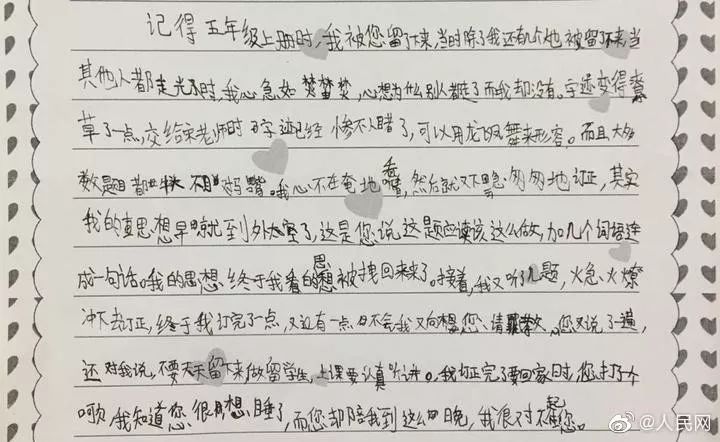 记得五年级上册时,我被您留了下来,当时除了我还有几个也被留下来,当
其他人都走光了时,我心急如焚,心想为什么别人都走了而我却没有。字迹变得潦
草了一点,交给宋老师时字迹已经惨不人睹了,可以用龙飞凤舞来形容。而且大多
数题目都。我心不在奄地看,然后就又匆匆地订正,其实
我的思想早就飞到外太空了,这是您说这题应该这么做,加几个词语连
成一句话。我的思想终于被拽回来了。接着,我又听了几题,火急火燎
冲下去订正,终于我订完了一点,又还有一点不会我又向您请教,您又说了一遍,
还对我说,不要天天留下来,做留学生,上课要认真听讲。我订正完了要回家时,您打了个
哈欠,我知道您很想睡了,而您却陪我到这么晚,我很对不起您。
@人民网